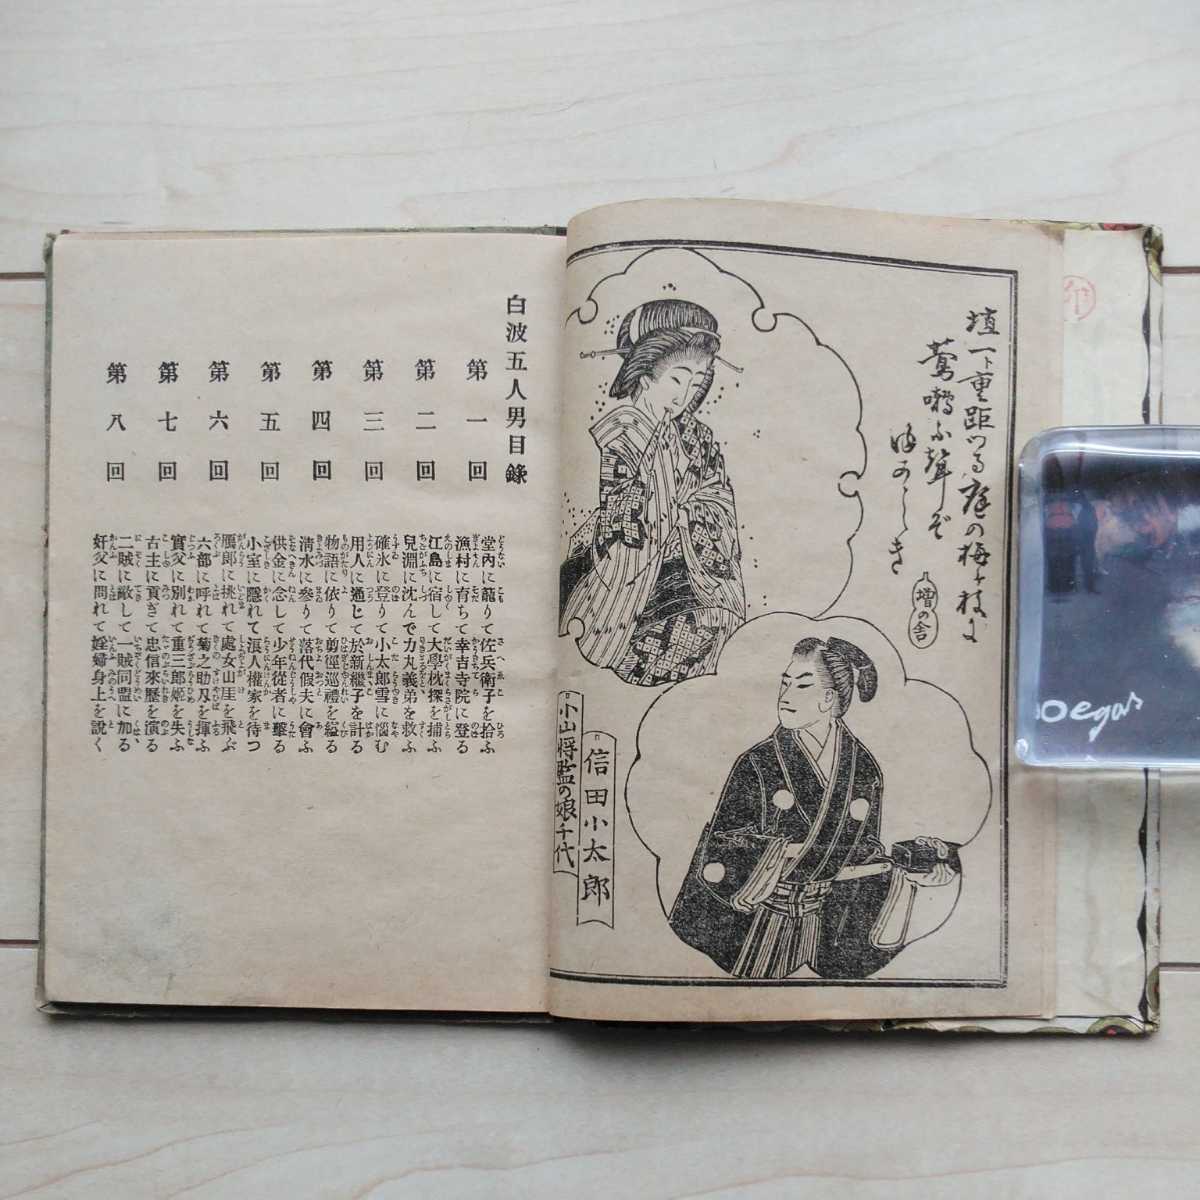 庭の梅ヶ枝に
増の舎
信田小太郎
小山将監の娘千代
白波五人男目錄
第一回
堂内に籠りて佐兵衛子を拾ふ
漁村に育ちて幸吉寺院に登る
第二回
江島に宿して大學枕探を捕ふ
兒淵に沈んで力丸義弟を救ふ
第三回
碓氷に登りて小太郎雪に悩む
用人に通じて於新繼子を計る
第四回
物語に依りて剪徑巡禮を縊る
清水に参りて落代假夫に會ふ
第五回
供金に念して少年從者に撃る
小室に隱れて浪人權家を待つ
第六回
贋郎に挑れて處女山崖を飛ぶ
六部に呼れて菊之助刄を揮ふ
第七回
實父に別れて重三郎姫を失ふ
古主に貢ぎて忠信來歷を演る
第八回
二賊に敵して一賊同盟に加る
奸父に問れて婬婦身上を說く